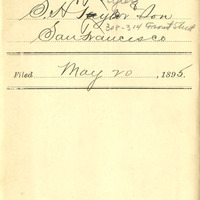 S. H. Taylor & Son
302-314 Front Street
San Francisco
Filed May 20, 1895.